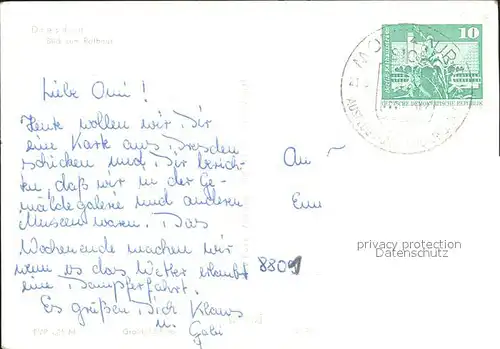 Dresden
Blick zum Rathaus
10
DEUTSCHE DEMOKRATISCHE REPUBLIK
Liebe Omi!
Heute wollen wir Dir
eine Karte aus Dresden
schicken und Dir berich-
ten, daß wir in der Ge-
mäldegalerie und anderen
Museen waren. Das
Wochenende machen wir
wenn es das Wetter erlaubt
eine Dampferfahrt.
Es grüßen Dich Klaus
u. Gabi
An
privacy protection
Datenschutz
8809